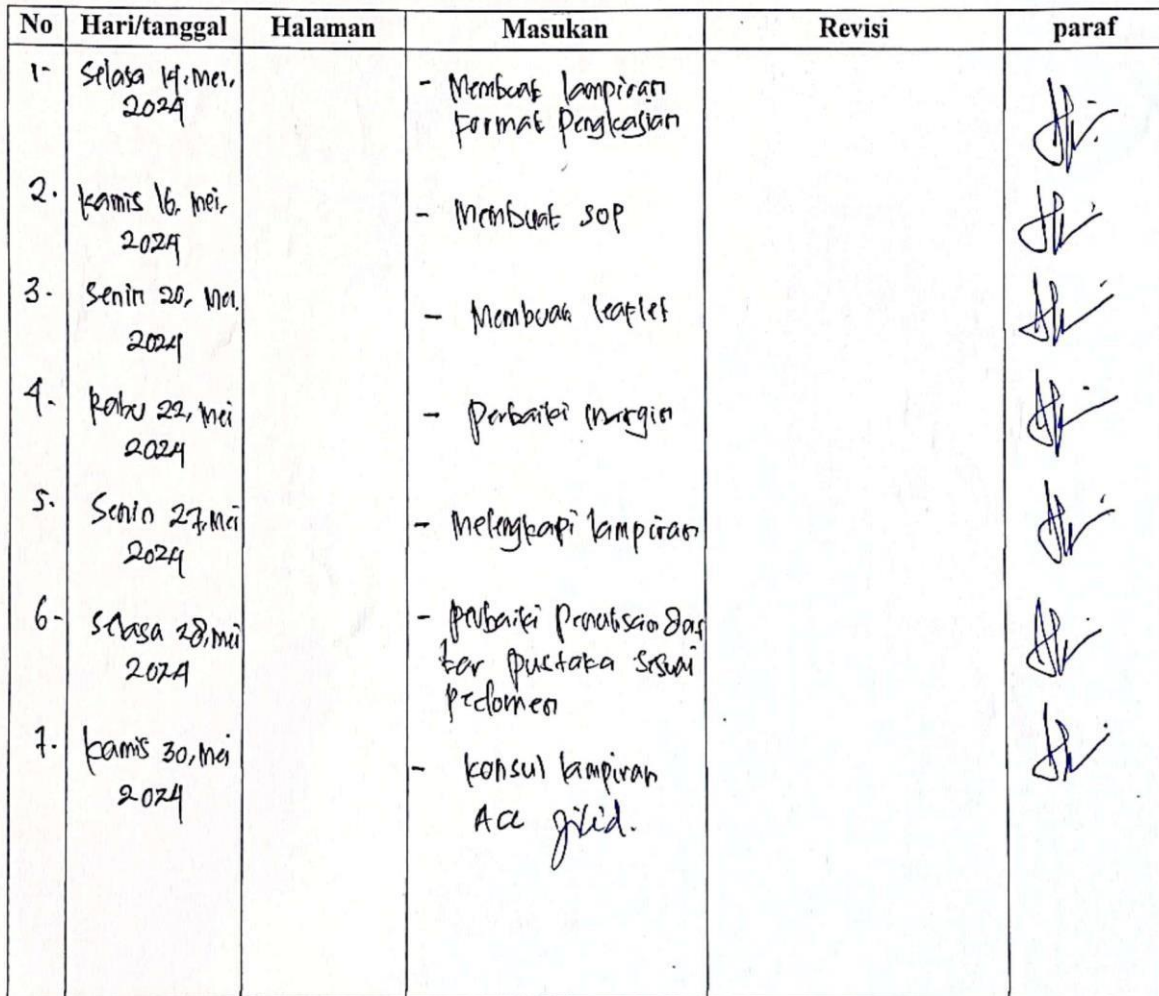 No Hari/tanggal Halaman Masukan Revisi paraf
1- Selasa 14, Mei, - Membuat lampiran
2024 Format Pengkajian
2. Kamis 16, Mei, - Membuat SOP
2024
3. Senin 20, Mei - Membuat leaflet
2024
4. Rabu 22, Mei - Perbaiki margin
2024
5. Senin 27, Mei - Melengkapi lampiran
2024
6- Selasa 28, Mei - Perbaiki Penulisan Daf
2024 tar pustaka sesuai
pedoman
7. Kamis 30, Mei - Konsul lampiran
2024 Acc jilid.